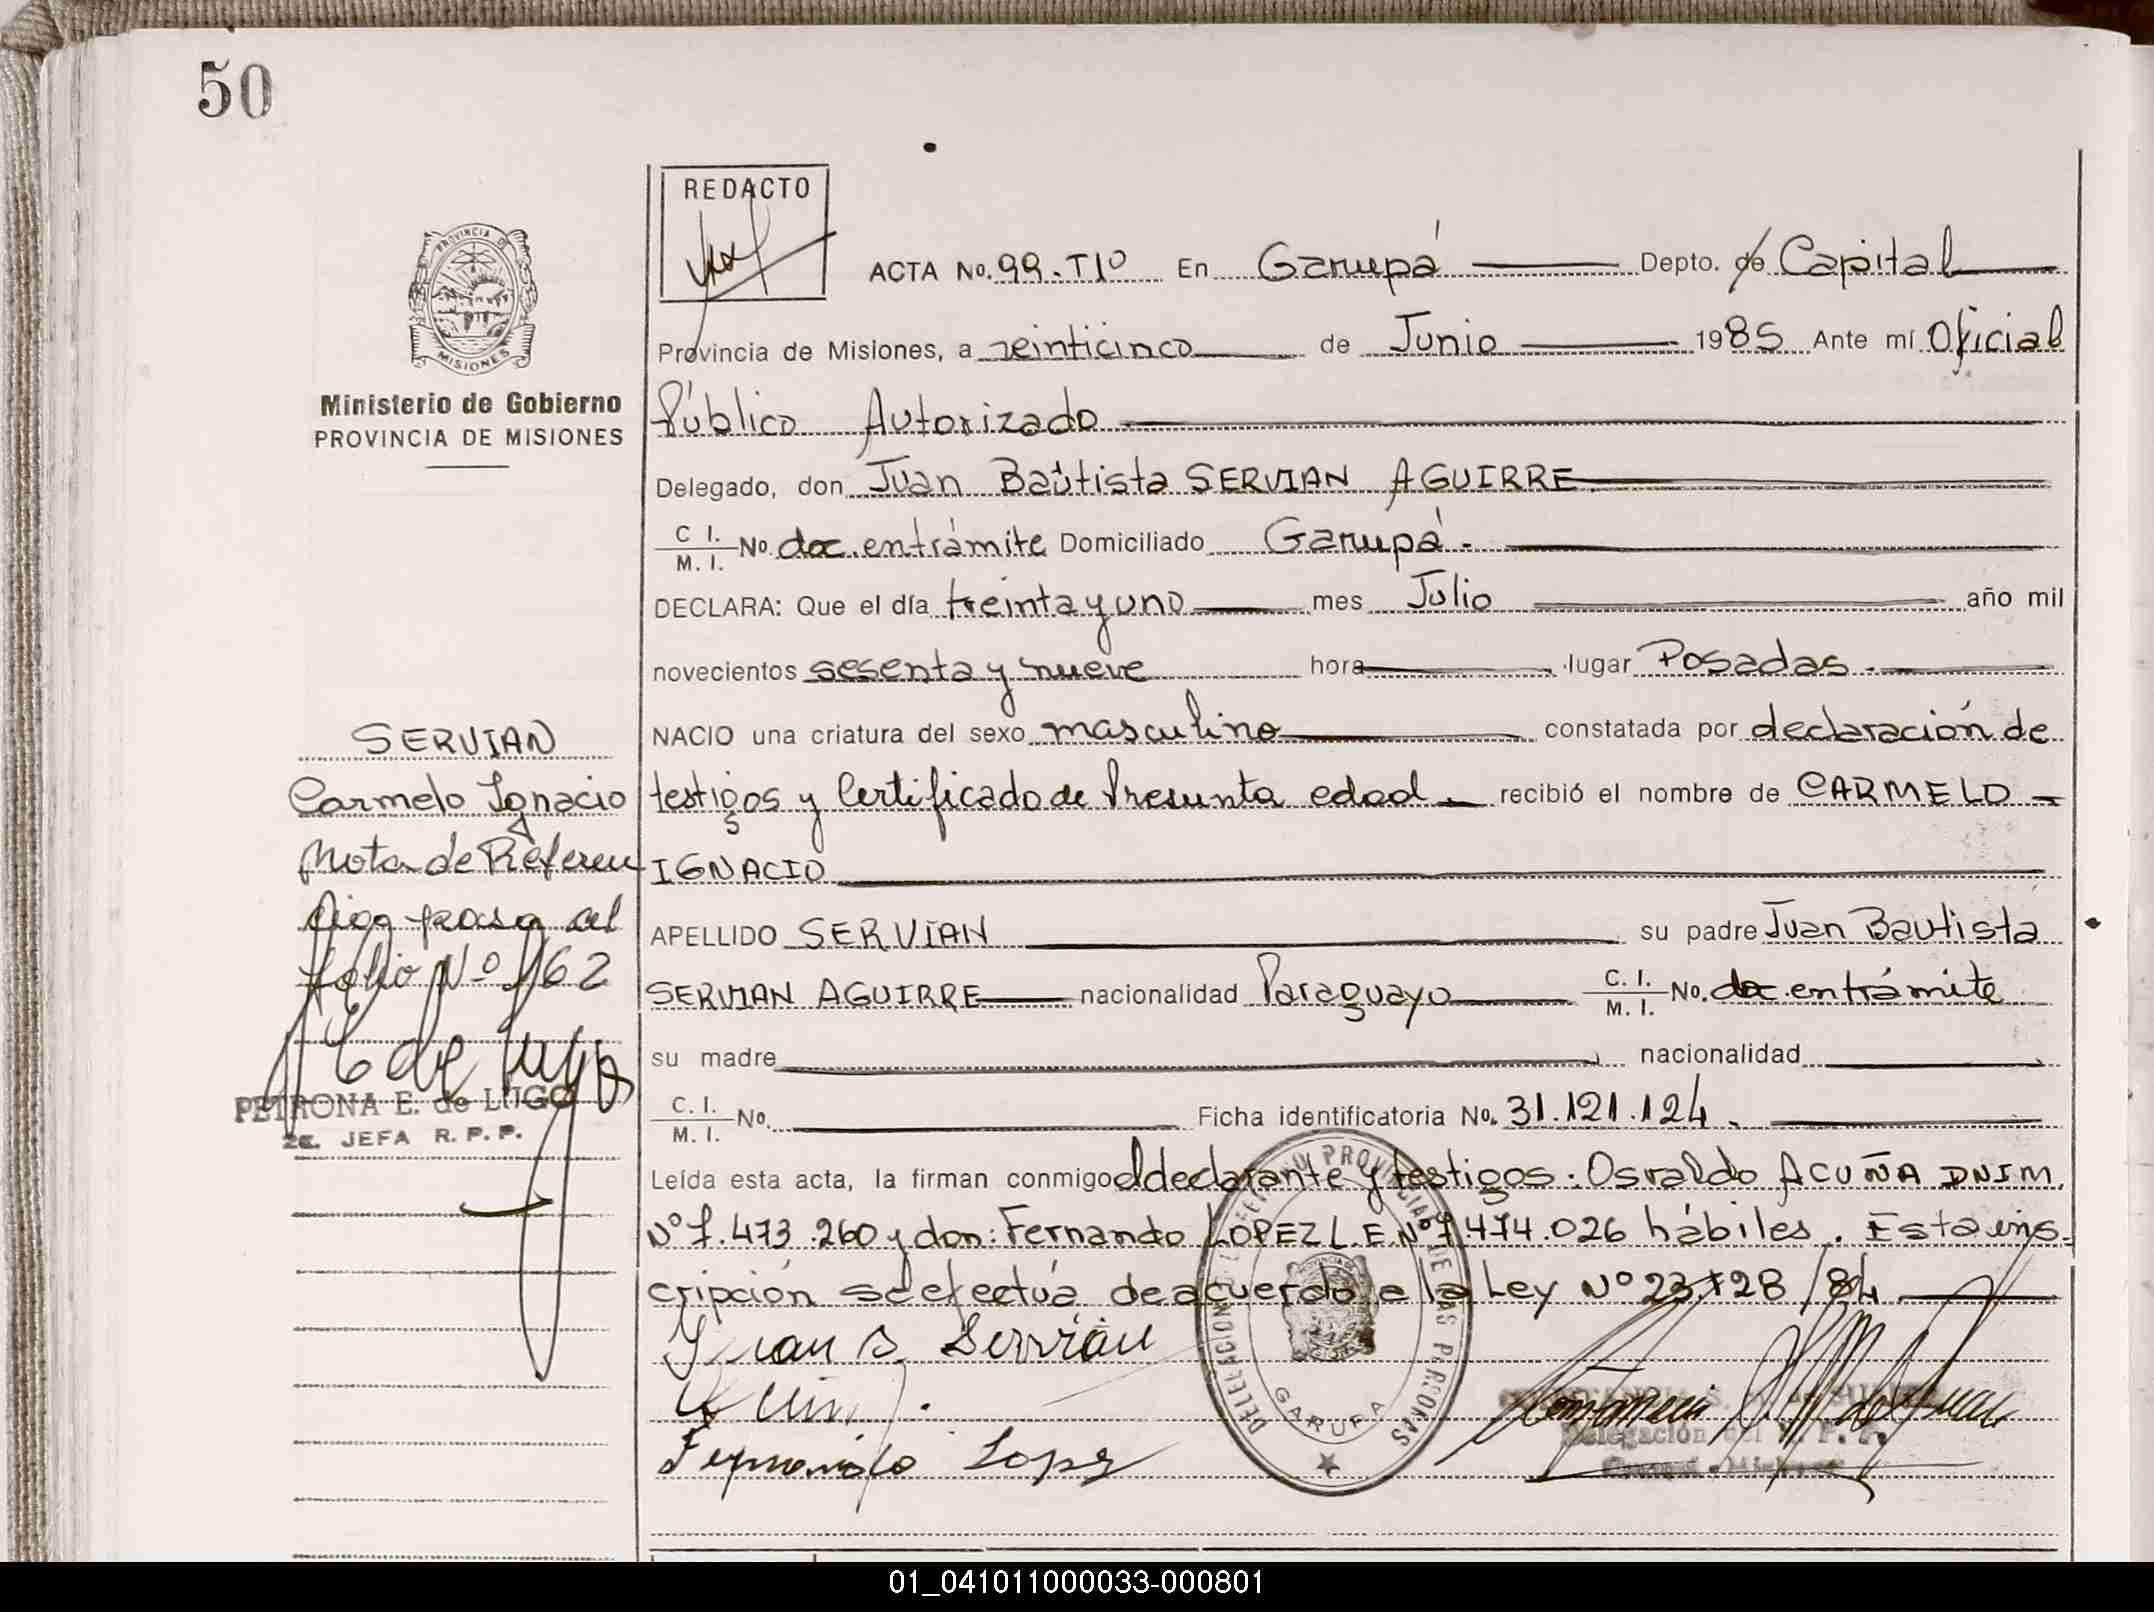 50
REDACTO
ACTA No. 99. T1º En Garupá Depto. de Capital
Provincia de Misiones, a veinticinco de Junio 1985 Ante mí Oficial
Público Autorizado
Delegado, don Juan Bautista SERVIAN AGUIRRE
C I. / M. I. No. doc. en trámite Domiciliado Garupá.
DECLARA: Que el día treinta y uno mes Julio año mil
novecientos sesenta y nueve hora lugar Posadas.
NACIO una criatura del sexo masculino constatada por declaración de
testigos y Certificado de Presunta edad recibió el nombre de CARMELO
IGNACIO
APELLIDO SERVIAN su padre Juan Bautista
SERVIAN AGUIRRE nacionalidad Paraguayo C. I. / M. I. No. doc en trámite
su madre nacionalidad
C. I. / M. I. No. Ficha identificatoria No. 31.121.124.
Leída esta acta, la firman conmigo el declarante y testigos: Osvaldo ACUÑA DNIM.
Nº 7.473.260 y don: Fernando LOPEZ L.E. Nº 7.474.026 hábiles. Esta ins-
cripción se efectúa de acuerdo a la Ley Nº 23128/84
Juan B. Servián
Fernando Lopez
PROVINCIA D MISIONES
Ministerio de Gobierno
PROVINCIA DE MISIONES
SERVIAN
Carmelo Ignacio
Nota de Referen
cia pasa al
folio Nº 162
E de Lugo
PETRONA E. de LUGO
2a. JEFA R. P. P.
DELEGACION REGISTRO PROVINCIAL DE LAS PERSONAS
GARUPA
Delegación del R. P. P.
01_041011000033-000801